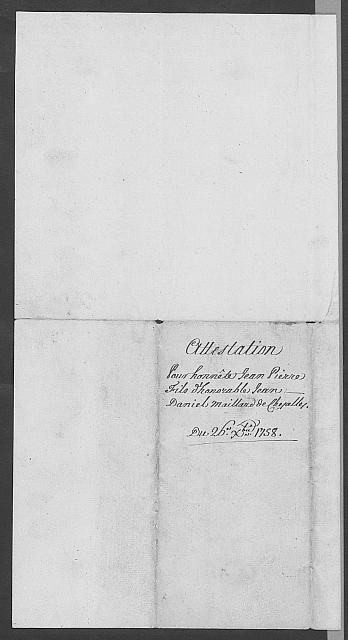 Attestation
Pour honnête Jean Pierre
Fils d'honorable Jean
Daniel Maillard de Chesalles.
Du 1758.